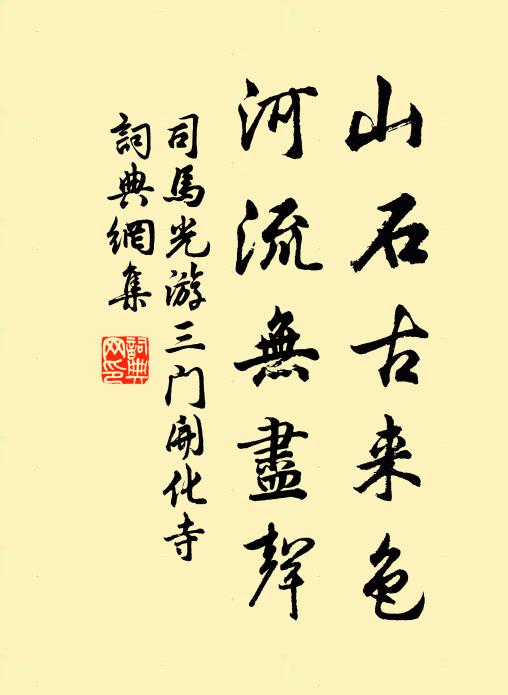 山石古来色
河流無盡聲
司馬光游三门開化寺
詞典網集
詞典網印